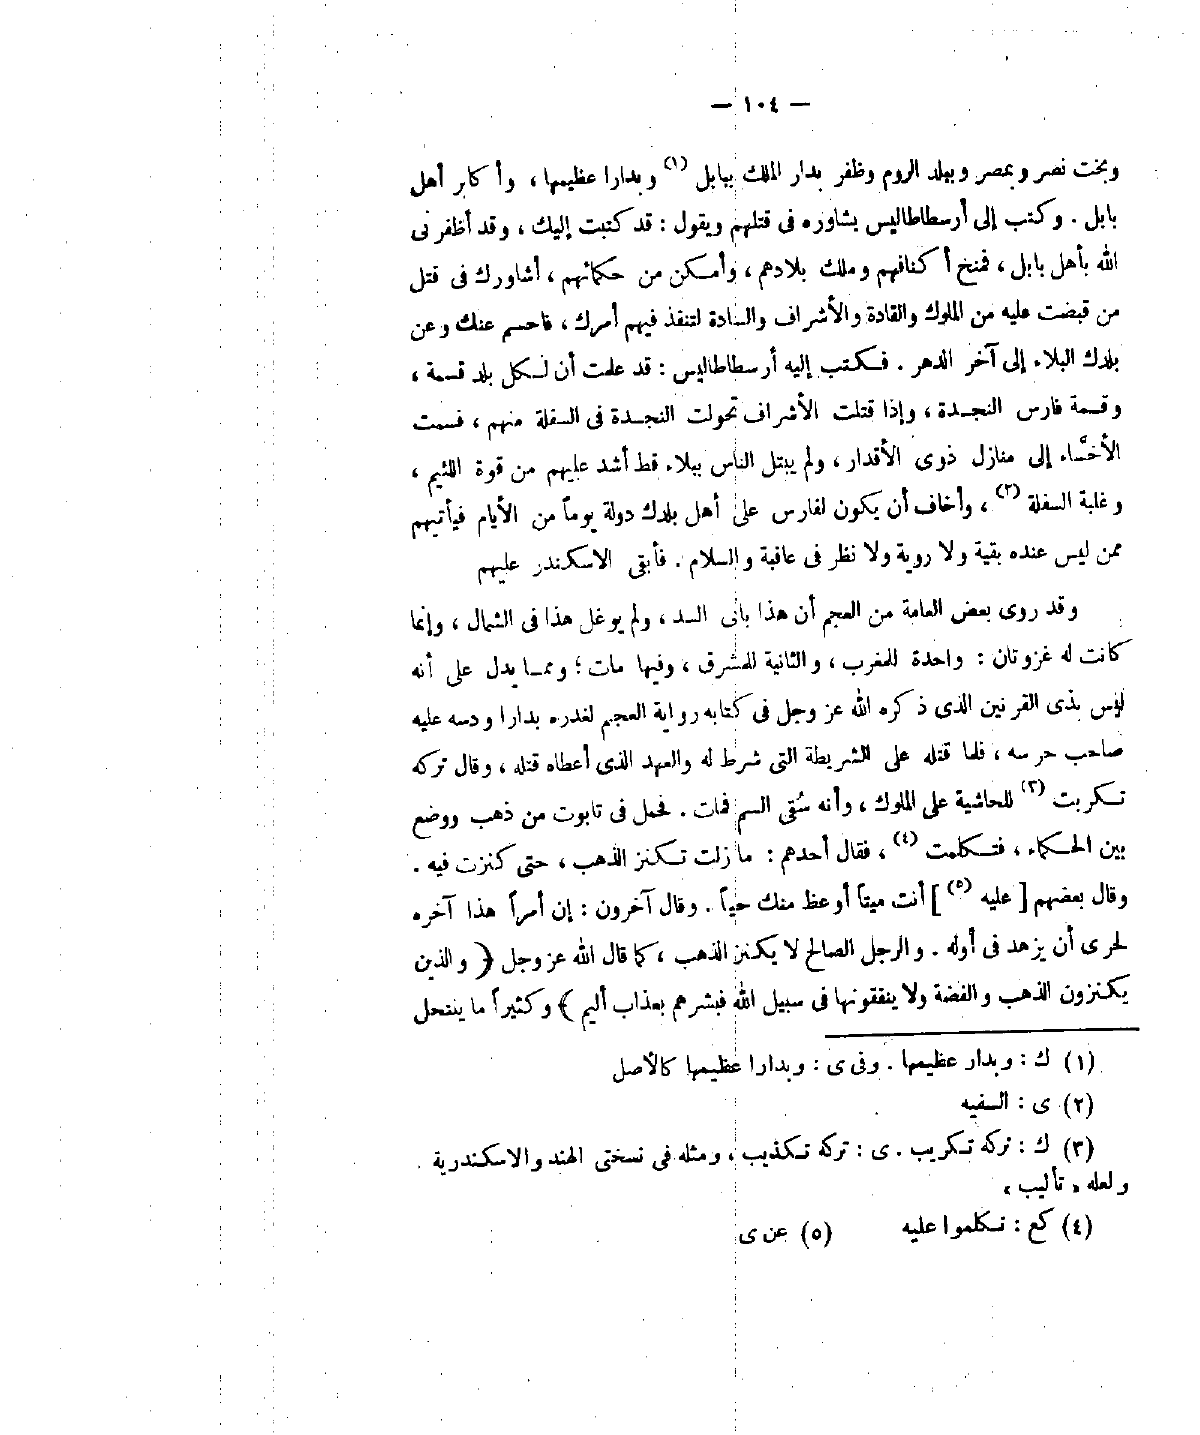 — ١٠٤ —
وبخت نصر وبمصر وببلد الروم وظفر بدار الملك ببابل (١) وبدارا عظيمها ، وأكابر أهل
بابل . وكتب إلى أرسطاطاليس يشاوره فى قتلهم ويقول : قد كتبت إليك ، وقد أظفرنى
الله بأهل بابل ، فمنح أكتافهم وملك بلادهم ، وأمكن من حكمائهم ، أشاورك فى قتل
من قبضت عليه من الملوك والقادة والأشراف والسادة لتنفذ فيهم أمرك ، فاحسم عنك وعن
بلدك البلاء إلى آخر الدهر . فكتب إليه أرسطاطاليس : قد علمت أن لكل بلد قسمة ،
وقسمة فارس النجدة ، وإذا قتلت الأشراف تحولت النجدة فى السفلة منهم ، فسمت
الأخسَّاء إلى منازل ذوى الأقدار ، ولم يبتل الناس ببلاء قط أشد عليهم من قوة اللئيم ،
وغلبة السفلة (٢) ، وأخاف أن يكون لفارس على أهل بلدك دولة يوماً من الأيام فيأتيهم
ممن ليس عنده بقية ولا روية ولا نظر فى عاقبة والسلام . فأبقى الاسكندر عليهم
وقد روى بعض العامة من العجم أن هذا بانى السد ، ولم يوغل هذا فى الشمال ، وإنما
كانت له غزوتان : واحدة للمغرب ، والثانية للمشرق ، وفيها مات ؛ ومما يدل على أنه
ليس بذى القرنين الذى ذكره الله عز وجل فى كتابه رواية العجم لغدره بدارا ودسه عليه
صاحب حرسه ، فلما قتله على الشريطة التى شرط له والعهد الذى أعطاه قتله ، وقال تركه
تكريت (٣) للحاشية على الملوك ، وأنه سُقى السم فمات . فحمل فى تابوت من ذهب ووضع
بين الحكماء ، فتكلمت (٤) ، فقال أحدهم : ما زلت تكنز الذهب ، حتى كنزت فيه .
وقال بعضهم [ عليه (٥) ] أنت ميتاً أوعظ منك حياً . وقال آخرون : إن أمراً هذا آخره
لحرى أن يزهد فى أوله . والرجل الصالح لا يكنز الذهب ، كما قال الله عز وجل ﴿ والذين
يكنزون الذهب والفضة ولا ينفقونها فى سبيل الله فبشرهم بعذاب أليم ﴾ وكثيراً ما ينتحل
(١) ك : وبدار عظيمها . وفى ى : وبدارا عظيمها كالأصل
(٢) ى : السفيه
(٣) ك : تركه تكريب . ى : تركه تكذيب ، ومثله فى نسختى الهند والاسكندرية .
ولعله « تأليب »
(٤) كع : تكلموا عليه (٥) عن ى